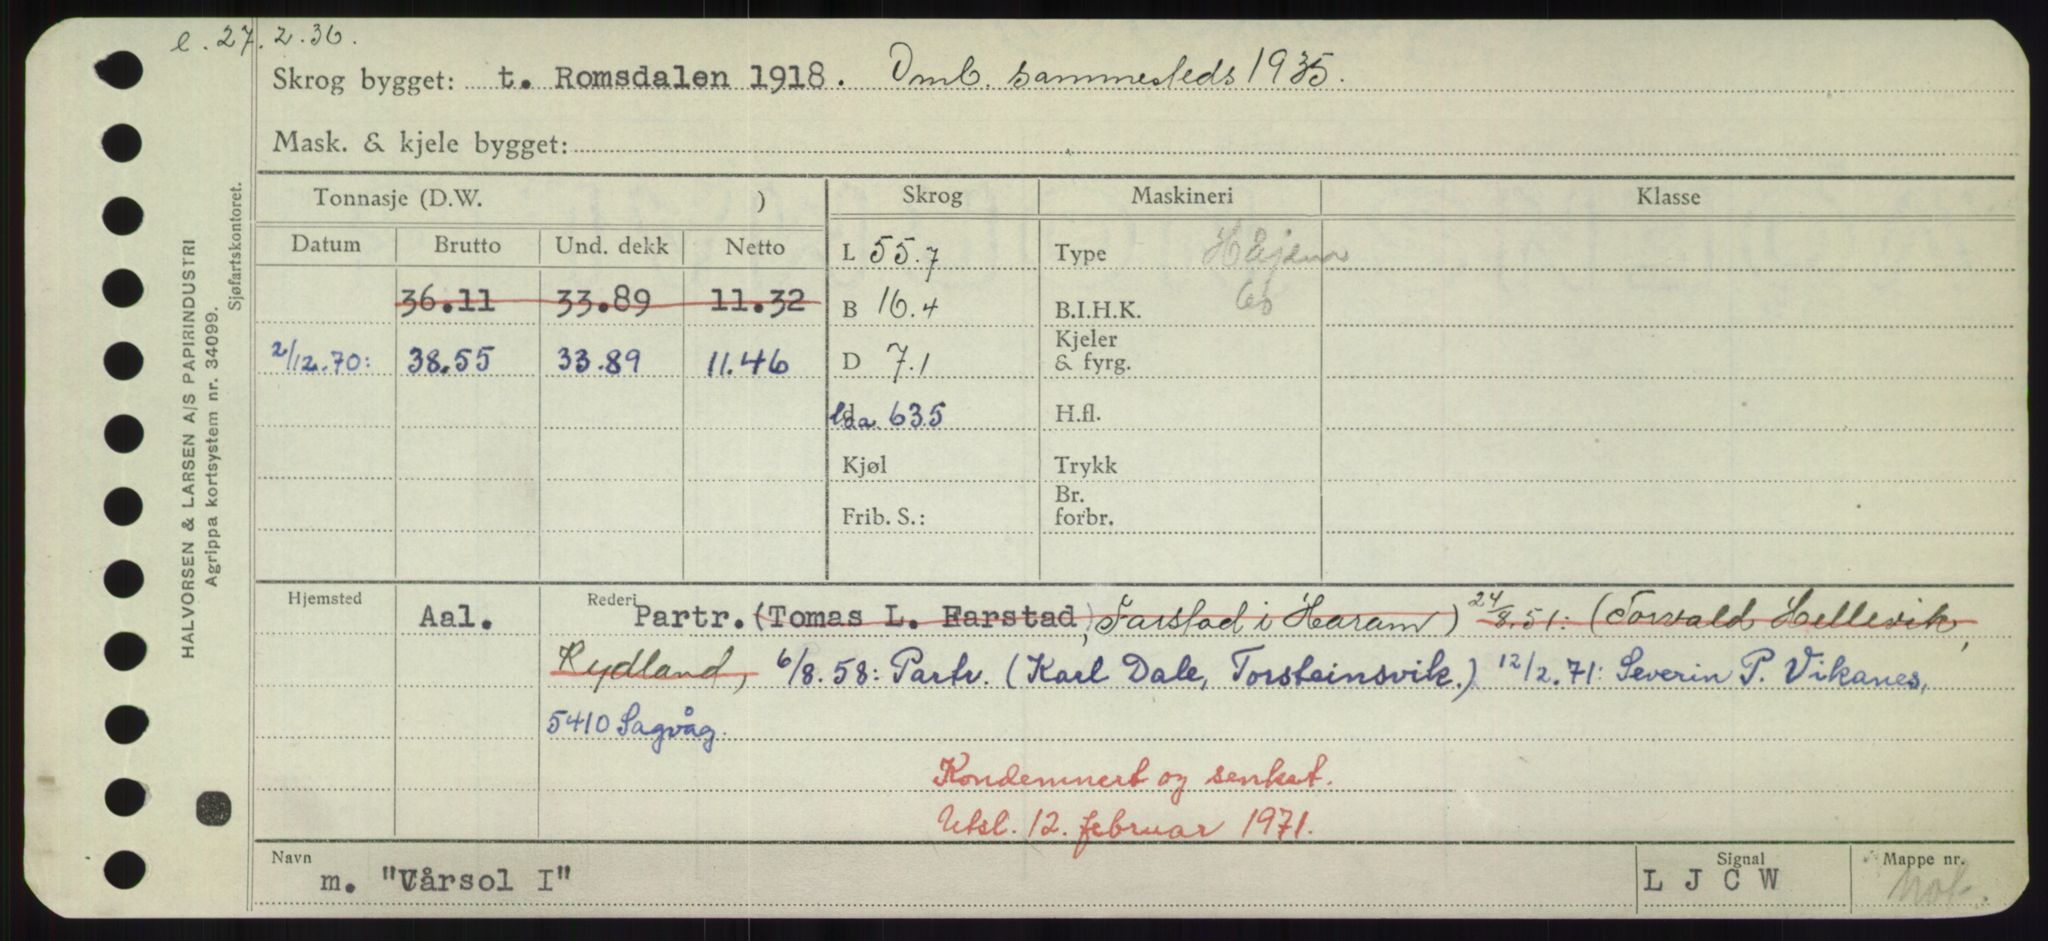 e. 27.2.36.
Skrog bygget: t. Romsdalen 1918. Omb. sammesteds 1935.
Mask. & kjele bygget:
Tonnasje (D.W. ) Skrog Maskineri Klasse
Datum Brutto Und. dekk Netto L 55.7 Type
36.11 33.89 11.32 B 16.4 B.I.H.K. 60
2/12.70: 38.55 33.89 11.46 D 7.1 Kjeler & fyrg.
lda. 63.5 H.fl.
Kjøl Trykk
Frib. S.: Br. forbr.
Hjemsted Aal. Rederi Partr. (Tomas L. Farstad, Farstad i Haram) 24/8.51: (Torvald Hellevik,
Rydland, 6/8.58: Partr. (Karl Dale, Torsteinsvik.) 12/2.71: Severin P. Vikanes,
5410 Sagvåg.
Kondemnert og senket.
Utsl. 12. februar 1971.
Navn m. "Vårsol I" Signal L J C W Mappe nr. Mot.
HALVORSEN & LARSEN A/S PAPIRINDUSTRI
Agrippa kortsystem nr. 34099.
Sjøfartskontoret.